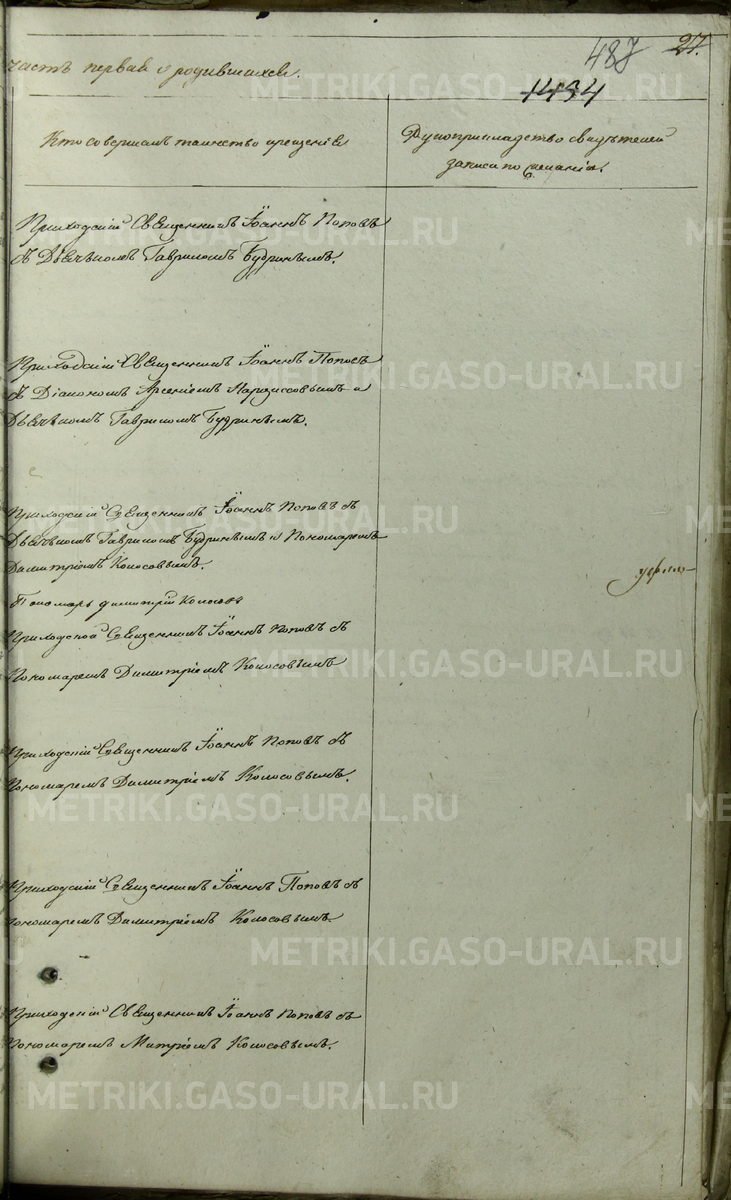 487 27.
1434
часть первая о родившихся.
Кто совершалъ таинство крещенія
Рукоприкладство свидѣтелей
записи по желанію.
Приходскій Священникъ Іоаннъ Поповъ
съ Дьячькомъ Гавриломъ Будринымъ.
Приходскій Священникъ Іоаннъ Поповъ
съ Діакономъ Арсеніемъ Нарциссовымъ и
Дьячькомъ Гавриломъ Будринымъ.
Приходскій Священникъ Іоаннъ Поповъ съ
Дьячькомъ Гавриломъ Будринымъ и Пономаремъ
Димитріемъ Колосовымъ.
Пономарь димитрій Колосовъ
Приходской Священникъ Іоаннъ Поповъ съ
Пономаремъ Димитріемъ Колосовымъ
Приходскій Священникъ Іоаннъ Поповъ съ
Пономаремъ Димитріемъ Колосовымъ.
Приходскій Священникъ Іоаннъ Поповъ съ
Пономаремъ Димитріемъ Колосовымъ.
Приходскій Священникъ Іоаннъ Поповъ съ
Пономаремъ Митріемъ Колосовымъ.
METRIKI.GASO-URAL.RU